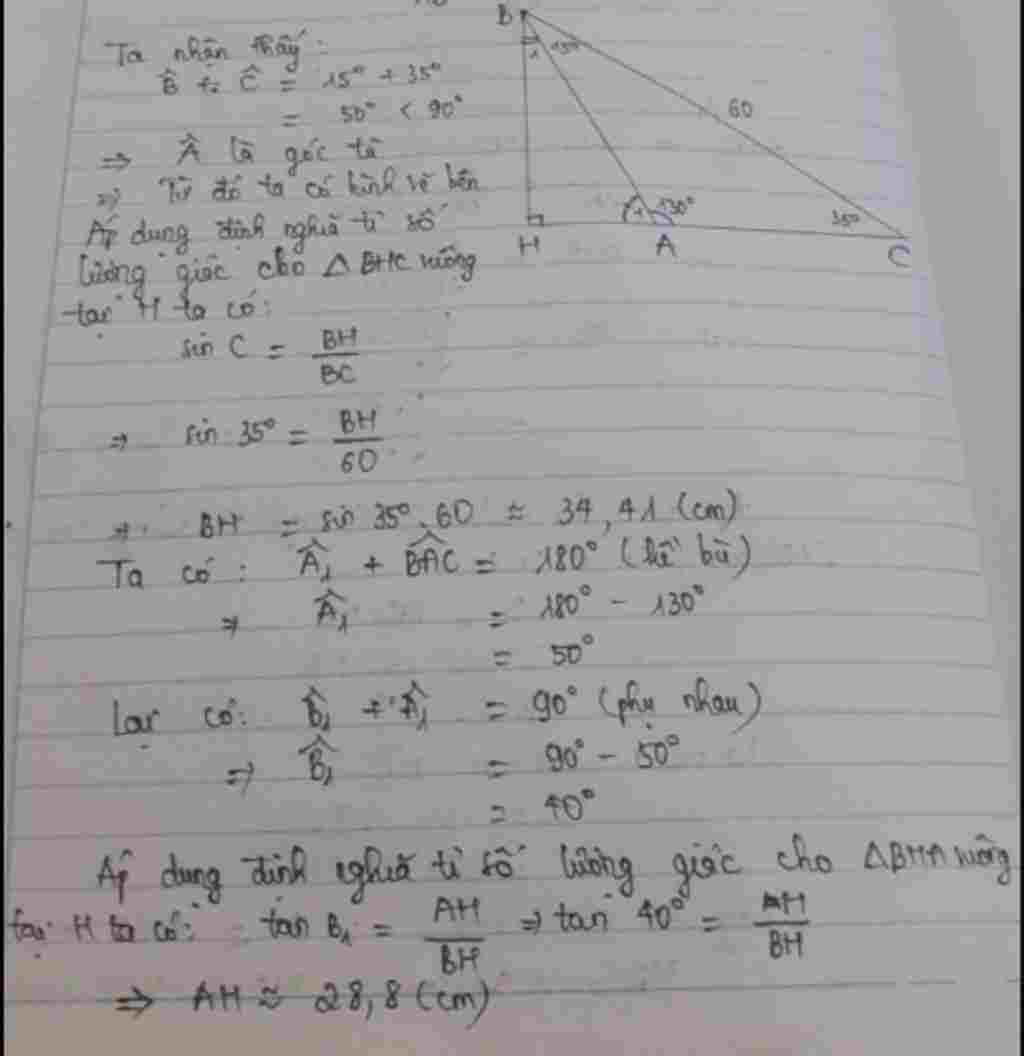 B
Ta nhận thấy:
B̂ + Ĉ = 15° + 35°
= 50° < 90°
⇒ Â là góc tù
⇒ Từ đó ta có hình vẽ bên
Áp dụng định nghĩa tỉ số
lượng giác cho △ BHC vuông
tại H ta có:
1 15°
60
1 130°
35°
H A C
sin C = BH/BC
⇒ sin 35° = BH/60
⇒ BH = sin 35°.60 ≈ 34,41 (cm)
Ta có: Â₁ + BAC = 180° (kề bù)
⇒ Â₁ = 180° - 130°
= 50°
Lại có: B̂₁ + Â₁ = 90° (phụ nhau)
⇒ B̂₁ = 90° - 50°
= 40°
Áp dụng định nghĩa tỉ số lượng giác cho △BHA vuông
tại H ta có: tan B₁ = AH/BH ⇒ tan 40° = AH/BH
⇒ AH ≈ 28,8 (cm)